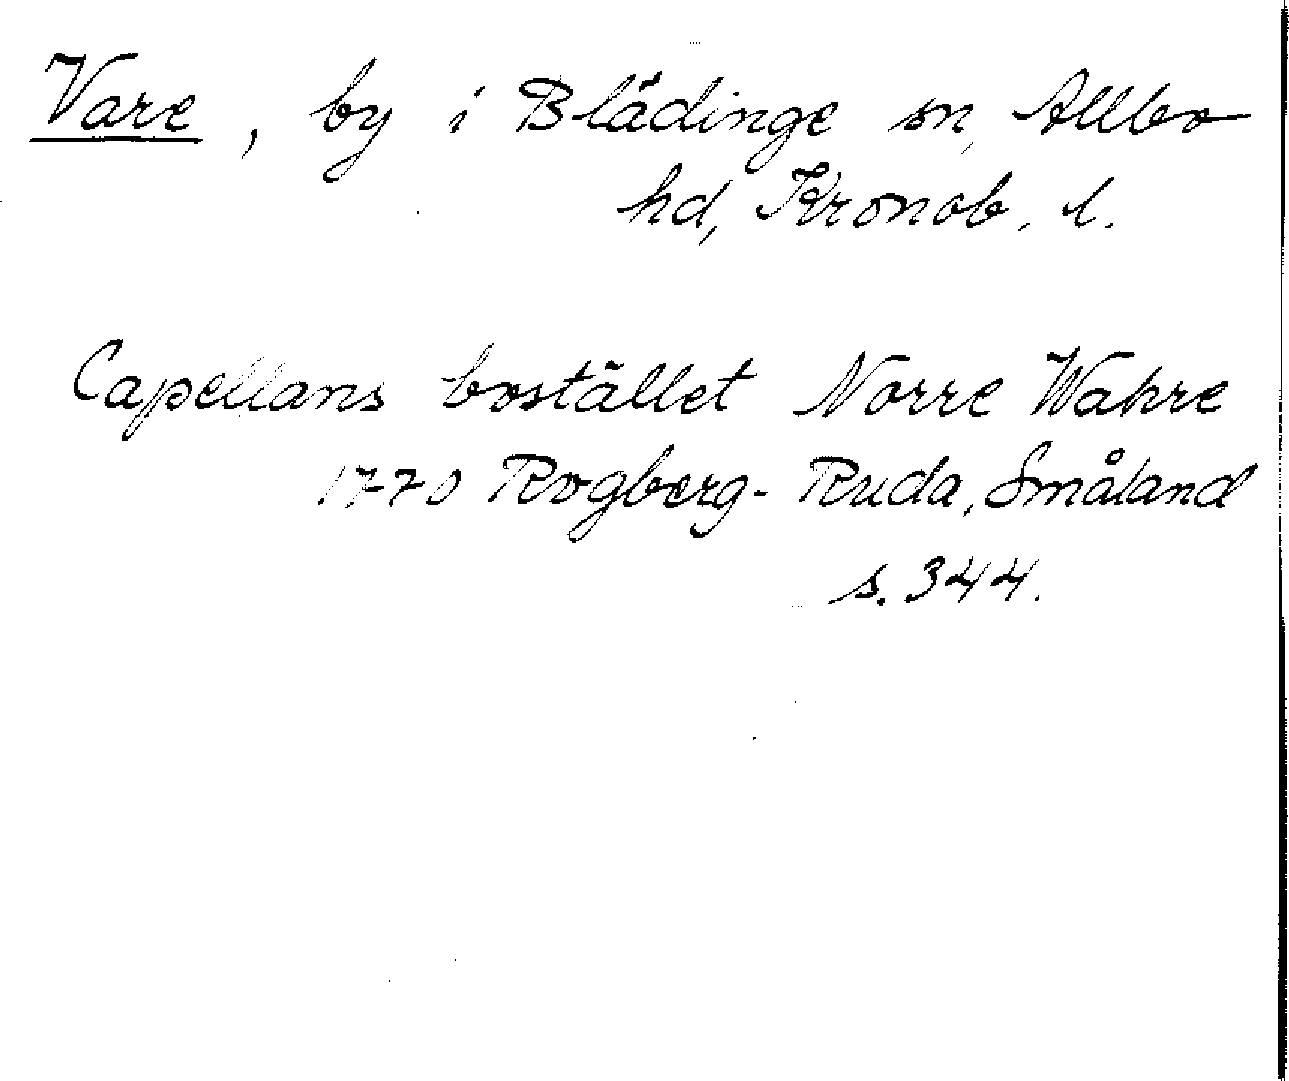 Vare, by i Blädinge sn, Allbo
hd, Kronob. l.
Capellans bostället Norre Wahre
1770 Rogberg-Ruda, Småland
s. 344.